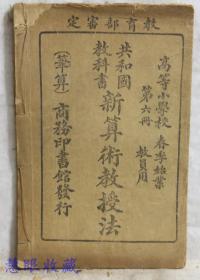 教育部審定
高等小學校 春季始業
第六冊 教員用
共和國
教科書
新算術教授法
(筆算)
商務印書館發行
慧眼收藏